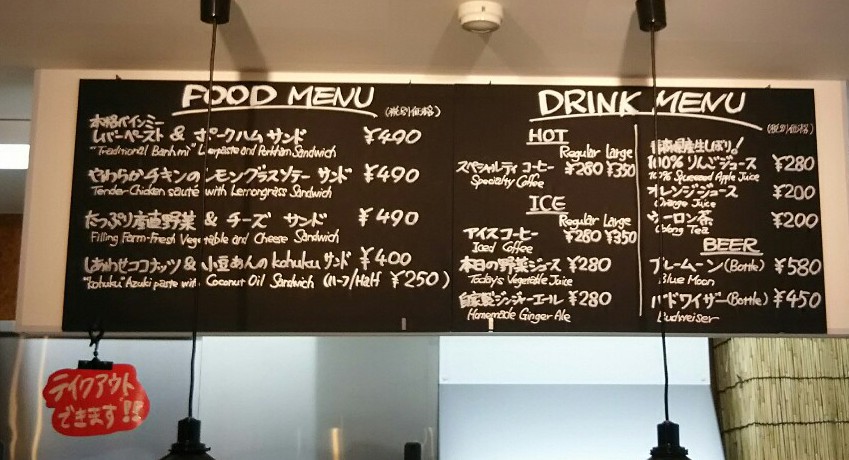 FOOD MENU (税別価格)
本格バインミー
レバーペースト & ポークハム サンド ¥490
"Traditional Banh mi" Liverpaste and Porkham Sandwich
やわらかチキンのレモングラスソテー サンド ¥490
Tender Chicken sauté with Lemongrass Sandwich
たっぷり産直野菜 & チーズ サンド ¥490
Filling Farm-Fresh Vegetable and Cheese Sandwich
しあわせココナッツ & 小豆あんのkohuku サンド ¥400
"kohuku" Azuki paste with Coconut Oil Sandwich (ハーフ/Half ¥250)
DRINK MENU (税別価格)
HOT
Regular Large
スペシャルティ コーヒー ¥280 ¥350
Specialty Coffee
ICE
Regular Large
アイスコーヒー ¥280 ¥350
Iced Coffee
本日の野菜ジュース ¥280
Today's Vegetable Juice
自家製ジンジャーエール ¥280
Homemade Ginger Ale
県産生しぼり!
100% りんごジュース ¥280
100% Squeezed Apple Juice
オレンジジュース ¥200
Orange Juice
ウーロン茶 ¥200
Oolong Tea
BEER
ブルームーン (Bottle) ¥580
Blue Moon
バドワイザー (Bottle) ¥450
Budweiser
テイクアウト
できます!!